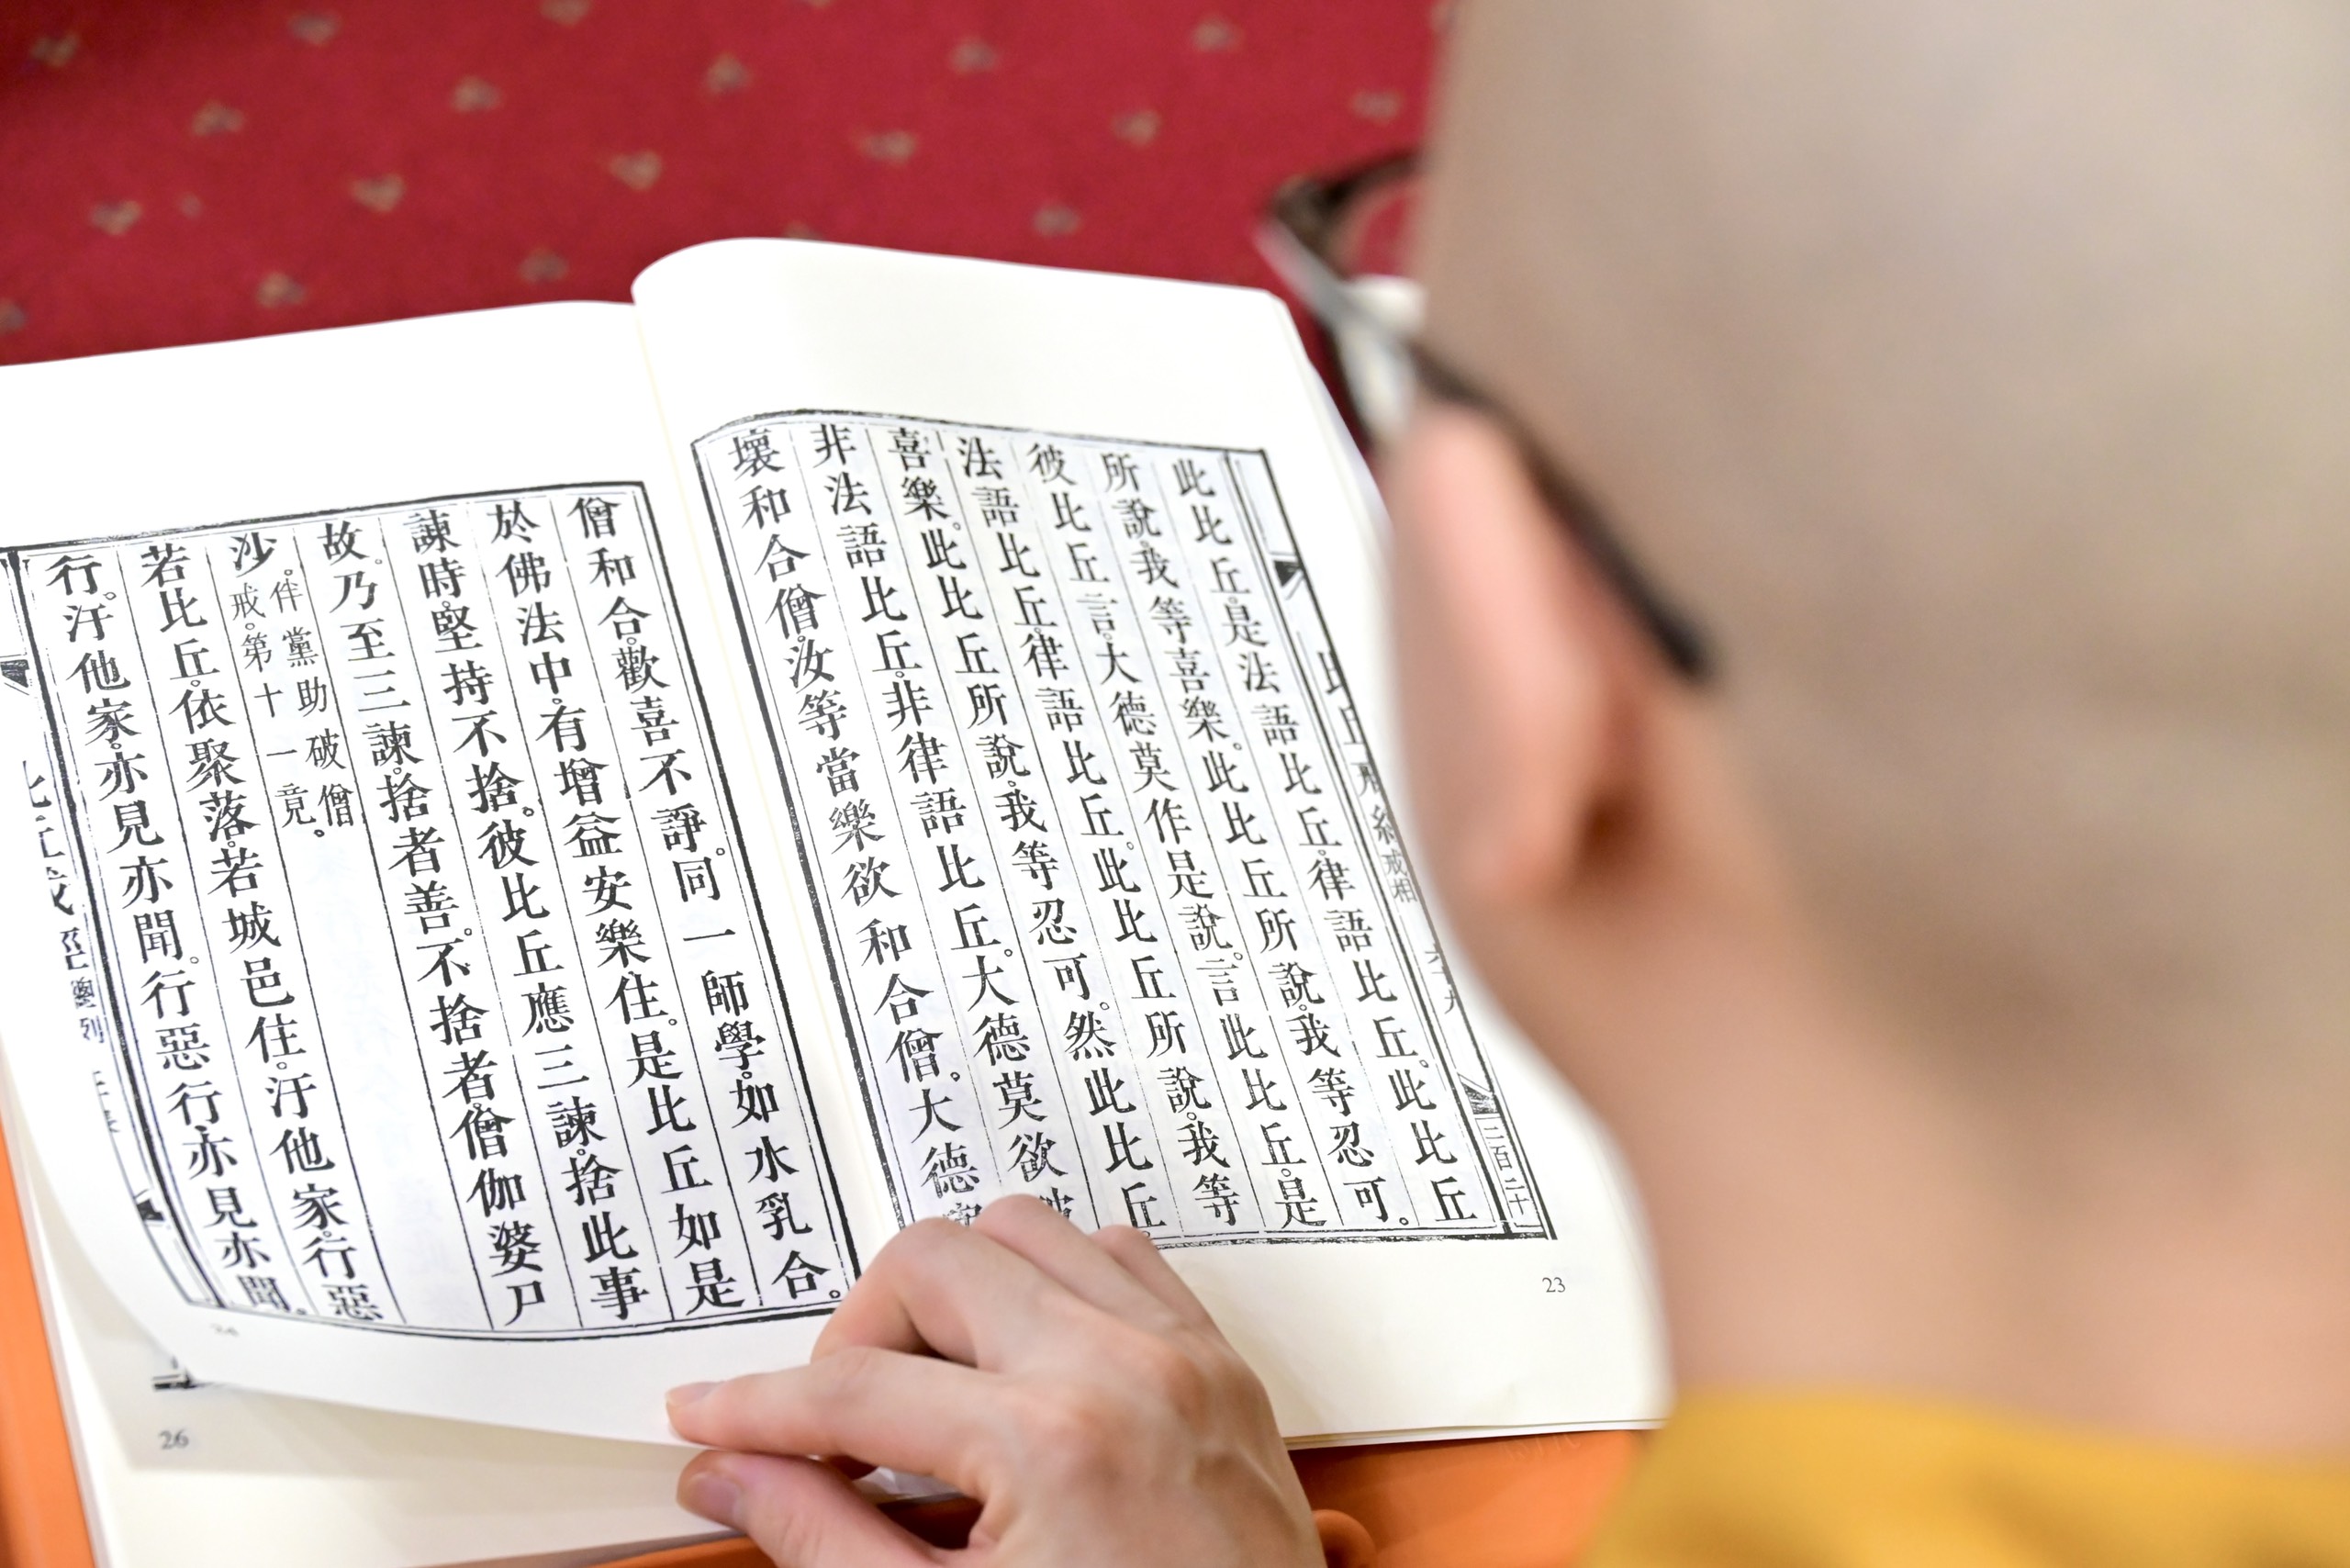 戒相
二百二十
此比丘。是法語比丘。律語比丘。此比丘
所說。我等喜樂。此比丘所說。我等忍可。
彼比丘言。大德莫作是說。言此比丘。是
法語比丘。律語比丘。此比丘所說。我等
喜樂。此比丘所說。我等忍可。然此比丘
非法語比丘。非律語比丘。大德莫欲
壞和合僧。汝等當樂欲和合僧。大德
23
僧和合。歡喜不諍。同一師學。如水乳合。
於佛法中。有增益安樂住。是比丘如是
諫時。堅持不捨。彼比丘應三諫。捨此事
故。乃至三諫。捨者善。不捨者。僧伽婆尸
沙。
伴黨助破僧
戒。第十一竟。
若比丘。依聚落。若城邑住。汙他家。行惡
行。汙他家。亦見亦聞。行惡行。亦見亦聞。
26